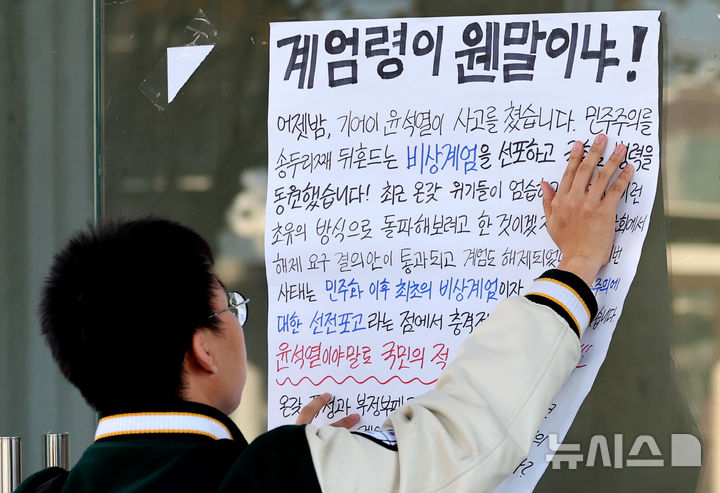 계엄령이 웬말이냐!
어젯밤, 기어이 윤석열이 사고를 쳤습니다. 민주주의를
송두리째 뒤흔드는 비상계엄을 선포하고
동원했습니다! 최근 온갖 위기들이 엄습하
초유의 방식으로 돌파해보려고 한 것이겠지
해제 요구 결의안이 통과되고 계엄도 해제되었
사태는 민주화 이후 최초의 비상계엄이자
대한 선전포고라는 점에서 충격
윤석열이야말로 국민의 적
온갖 부정부패
뉴시스